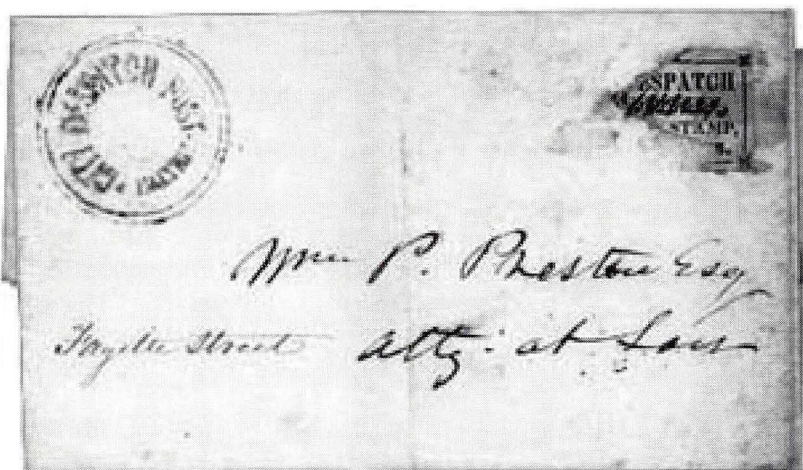 CITY DESPATCH POST
BALTRE
ESPATCH
STAMP,
s.
Wm P. Preston Esq
Fayette Street atty: at Law